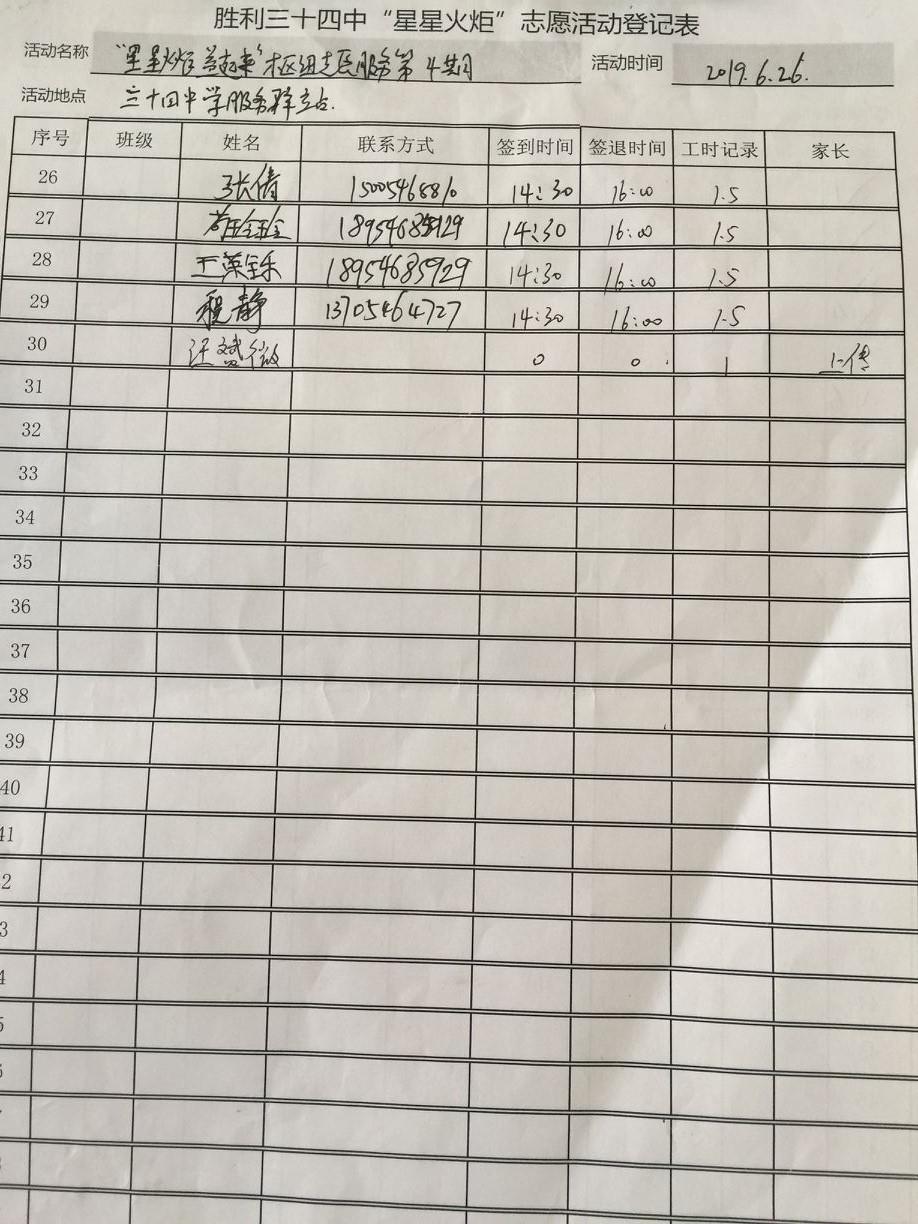 胜利三十四中“星星火炬”志愿活动登记表
活动名称 “星星火炬 益起来” 志愿服务第4期
活动时间 2019.6.26.
活动地点 三十四中学服务驿站.
序号 班级 姓名 联系方式 签到时间 签退时间 工时记录 家长
26 张倩 15005468810 14:30 16:00 1.5
27 14:30 16:00 1.5
28 18954685929 14:30 16:00 1.5
29 程静 13705464727 14:30 16:00 1.5
30 0 0 1 上传
31
32
33
34
35
36
37
38
39
40
41
2
3
4
5